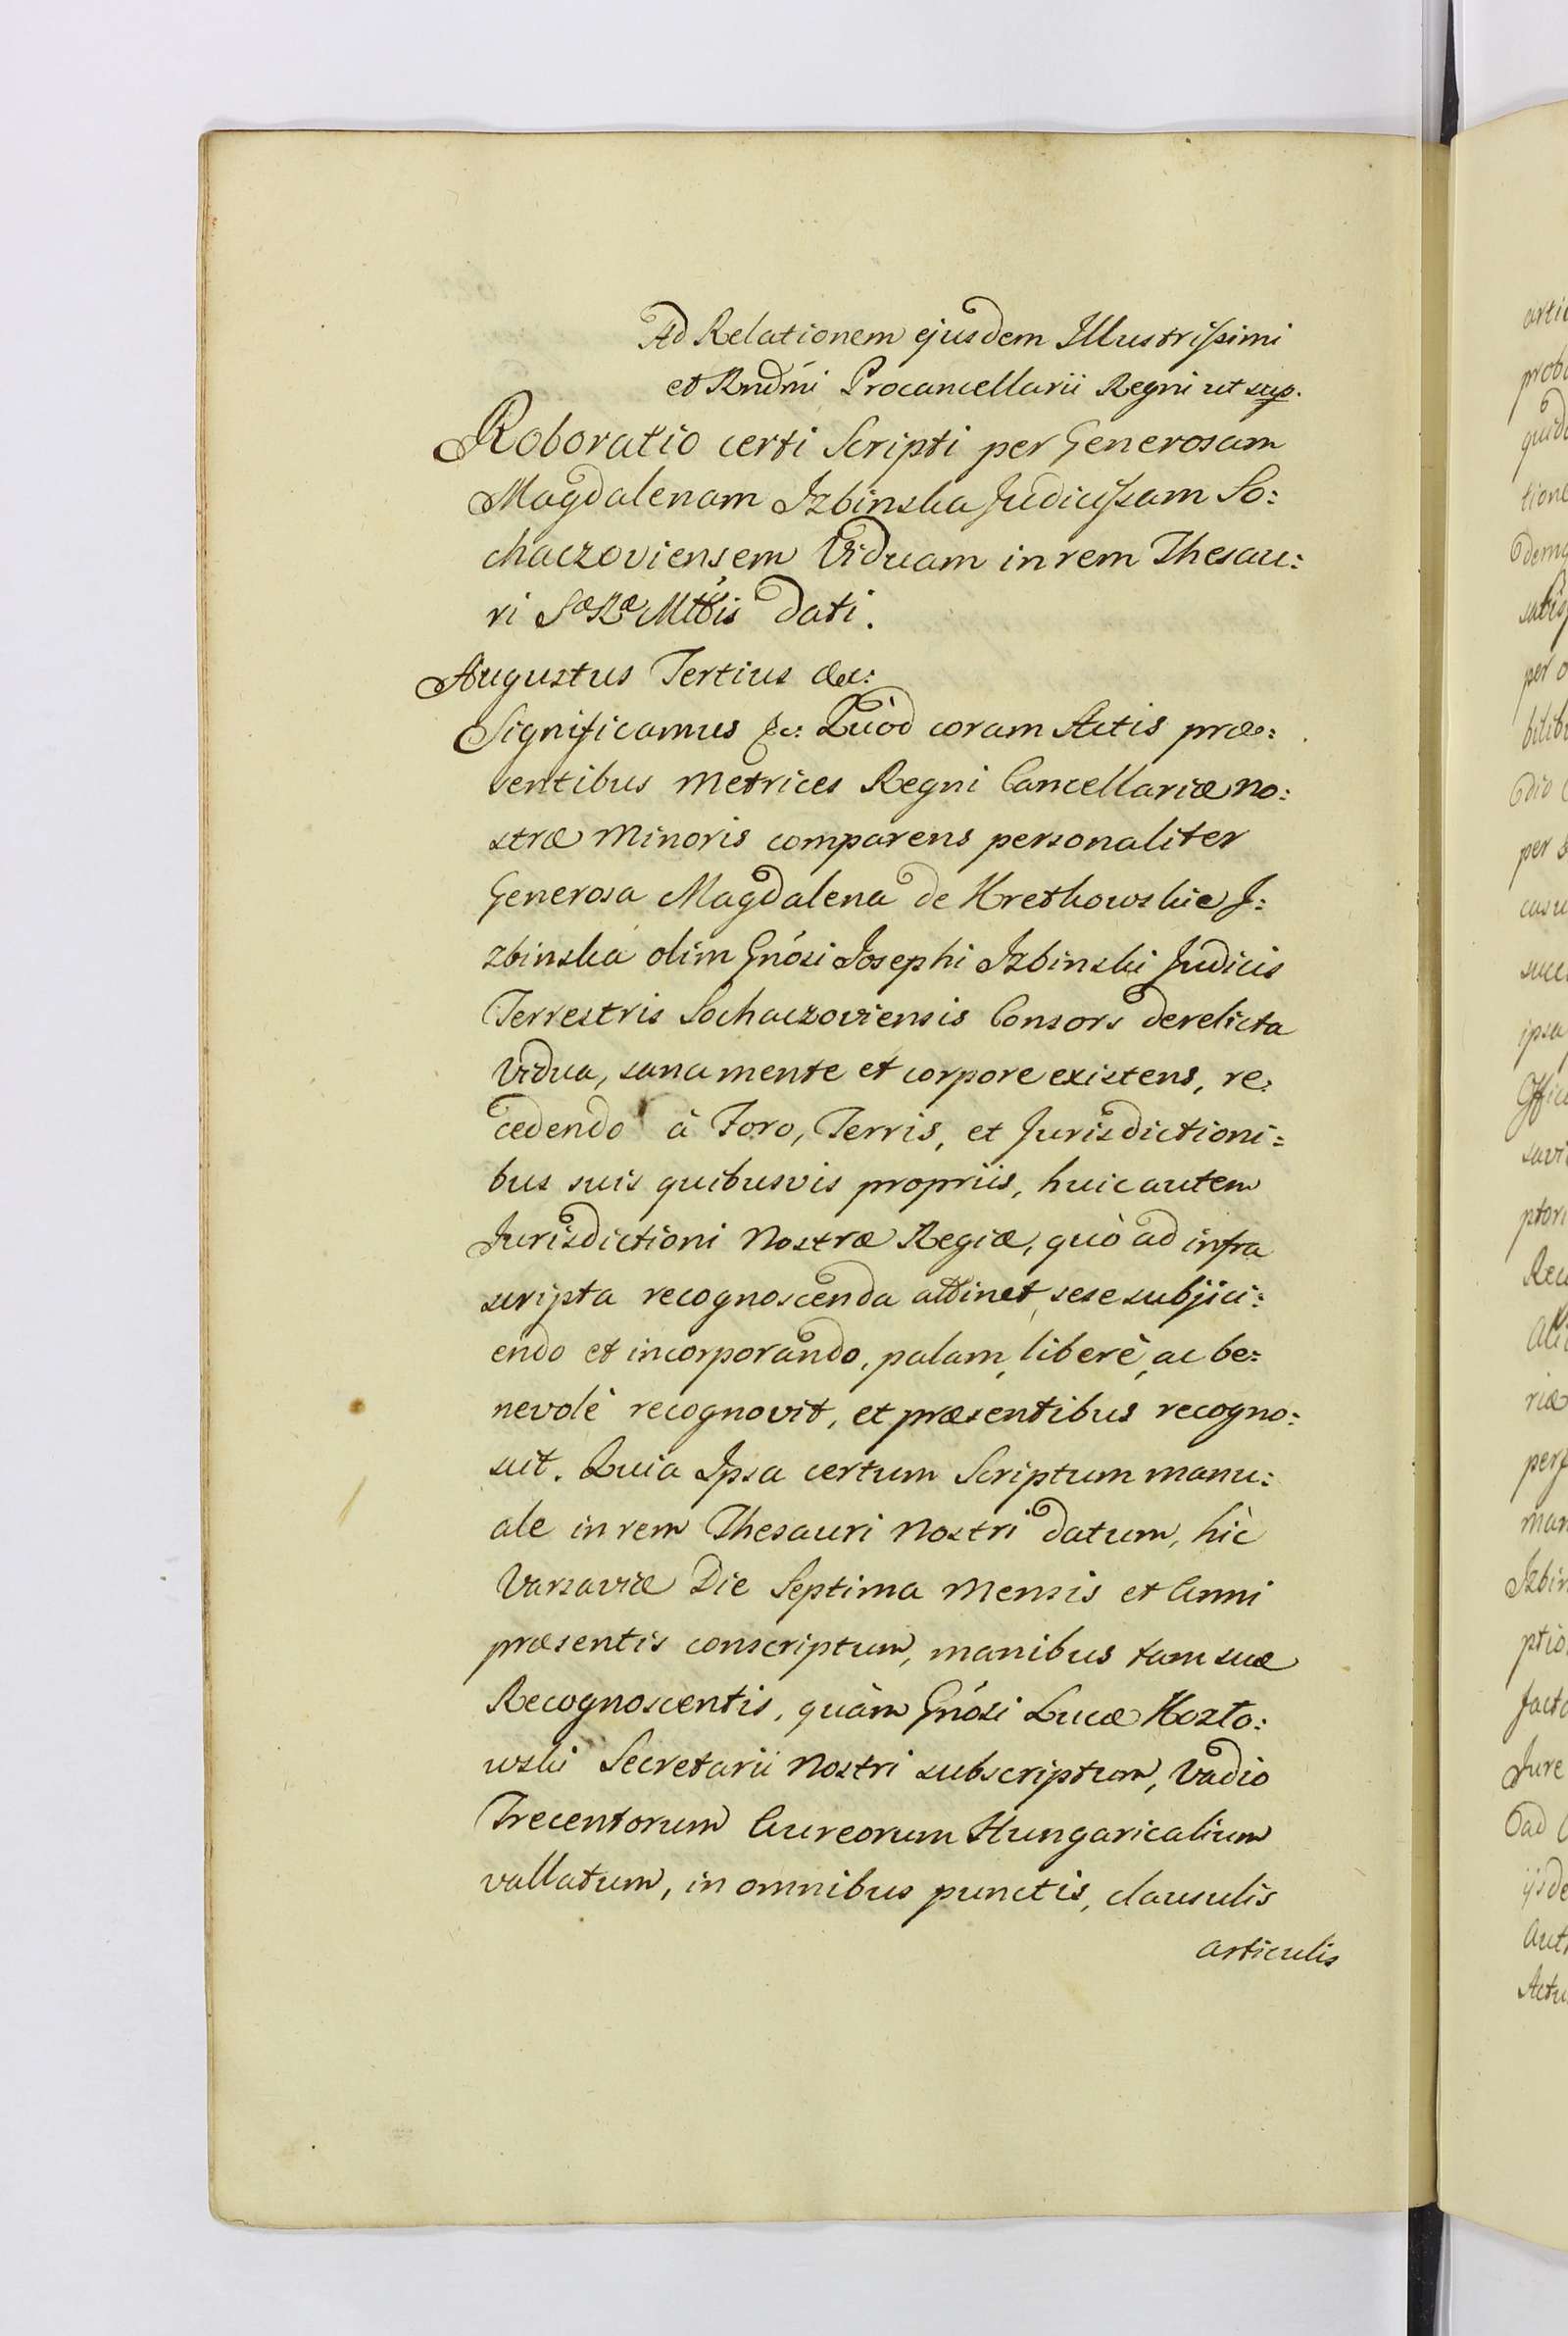 Ad Relationem ejusdem Illustrissimi
et Rndmi Procancellarii Regni ut sup.
Roboratio certi Scripti per Generosam
Magdalenam Izbinska Judicissam So:
chaczoviensem Viduam in rem Thesau:
ri Sæ Ræ Mttis dati.
Augustus Tertius &c:
Significamus &c: Quòd coram Actis præ:
sentibus Metrices Regni Cancellariæ no:
stræ Minoris comparens personaliter
Generosa Magdalena de Kretkowskie I:
zbinska olim Gnósi Josephi Izbinski Judicis
Terrestris Sochaczoviensis Consors derelicta
Vidua, sana mente et corpore existens, re:
cedendo à Foro, Terris, et Jurisdictioni:
bus suis quibusvis propriis, huic autem
Jurisdictioni Nostræ Regiæ, quò ad infra
scripta recognoscenda attinet, sese subjici:
endo et incorporando, palam, liberè, ac be:
nevolè recognovit, et præsentibus recogno:
scit. Quia Ipsa certum Scriptum manu:
ale in rem Thesauri Nostri datum, hìc
Varsaviæ Die Septima Mensis et Anni
præsentis conscriptum, manibus tam suæ
Recognoscentis, quàm Gnósi Lucæ Kozto:
wski Secretarii Nostri subscriptum, Vadio
Trecentorum Aureorum Hungaricalium
vallatum, in omnibus punctis, clausulis
articulis